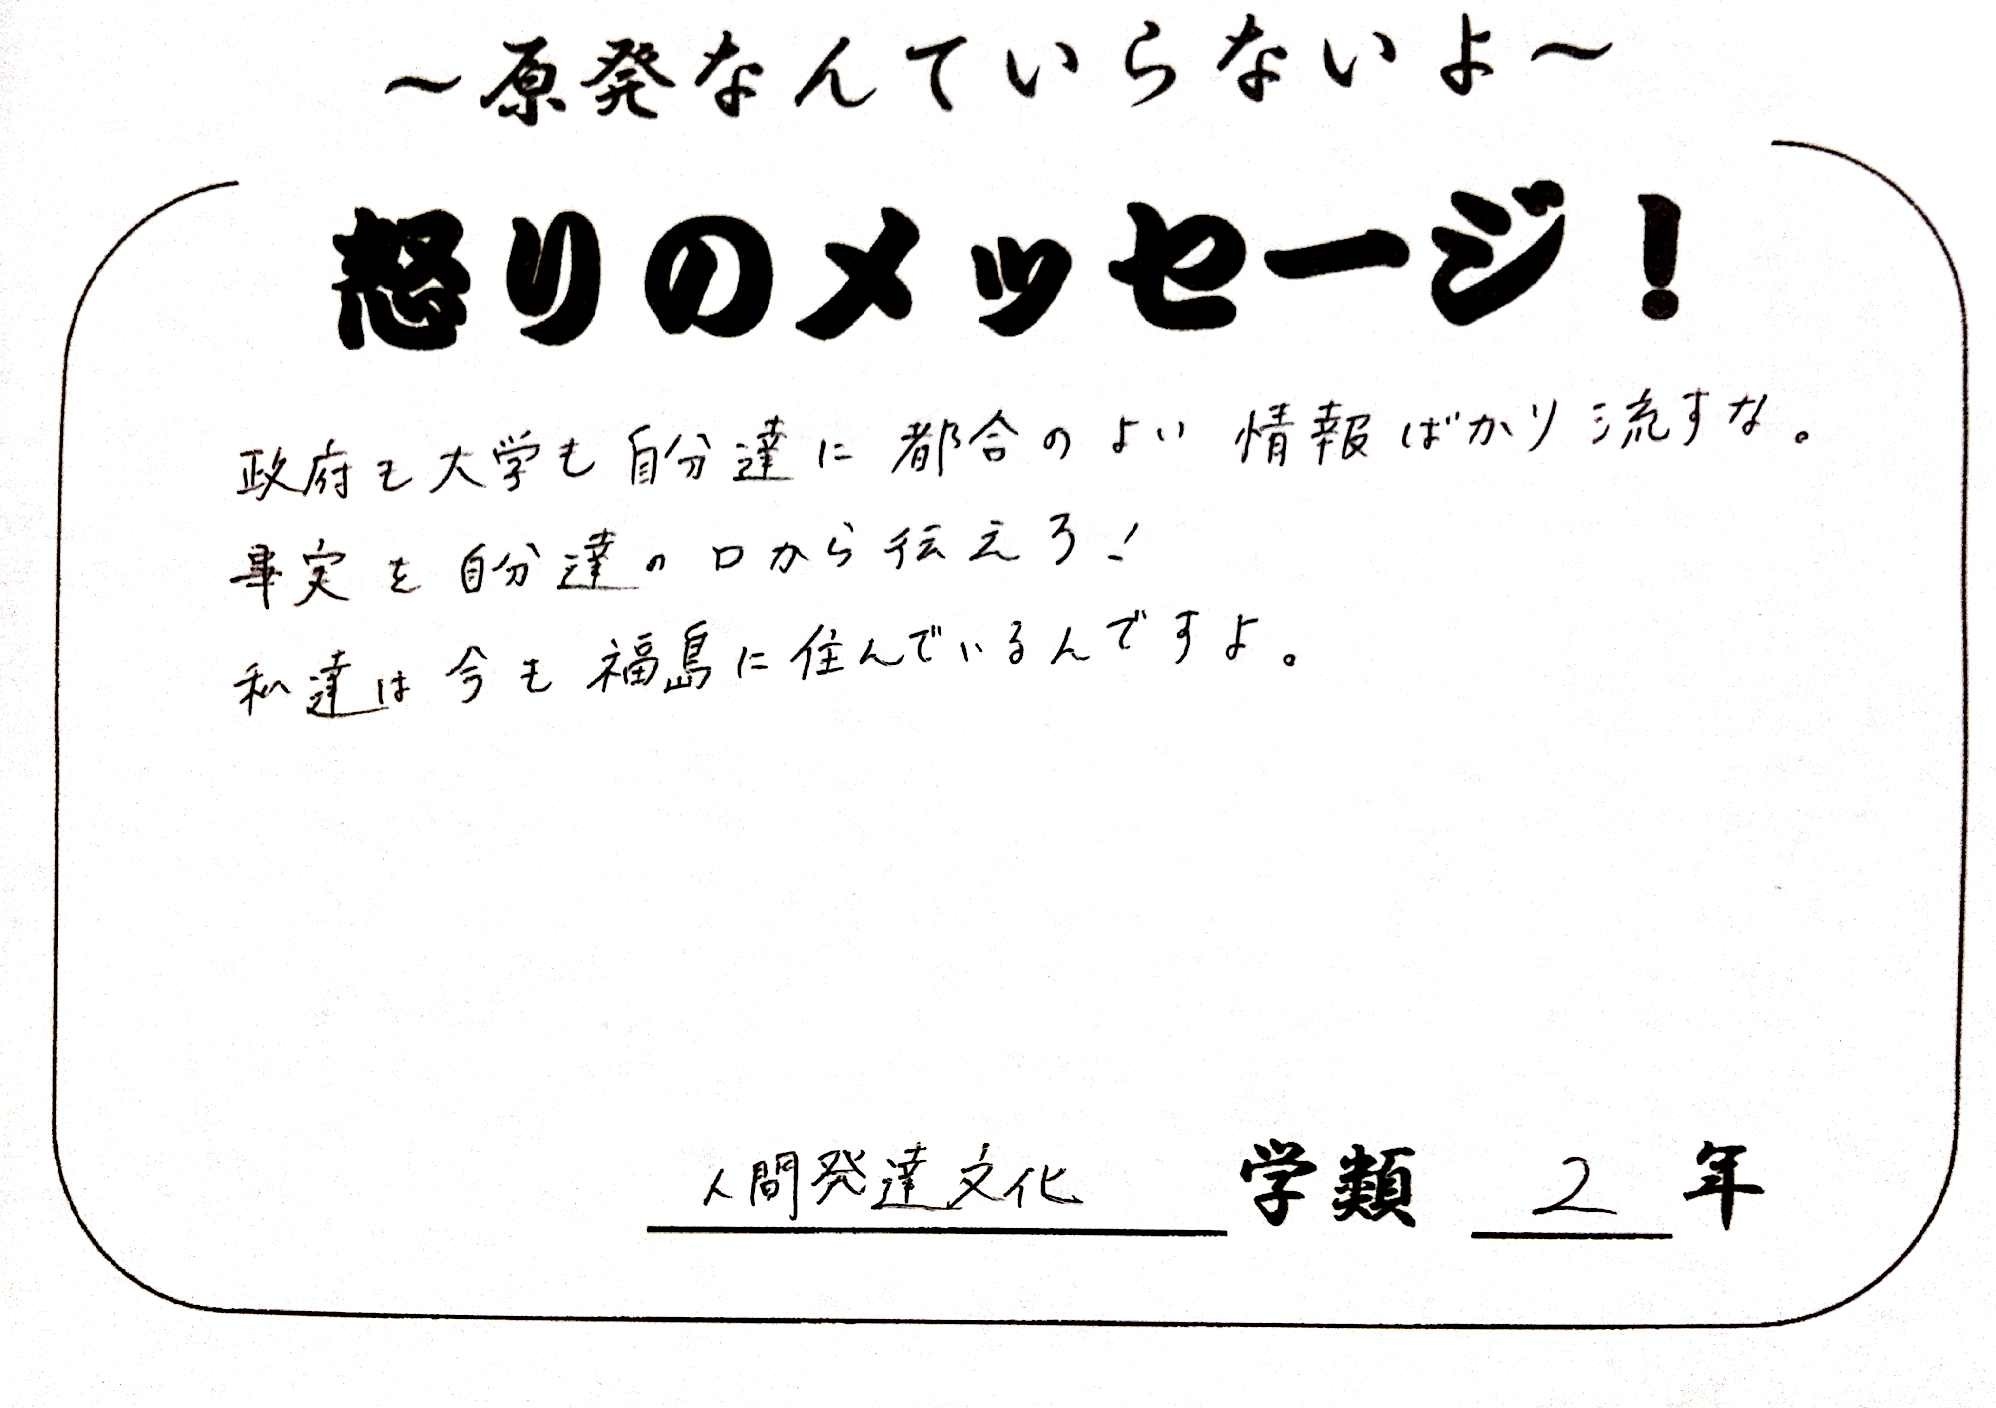 ～原発なんていらないよ～
怒りのメッセージ！
政府も大学も自分達に都合のよい情報ばかり流すな。
事実を自分達の口から伝えろ！
私達は今も福島に住んでいるんですよ。
人間発達文化 学類 2 年